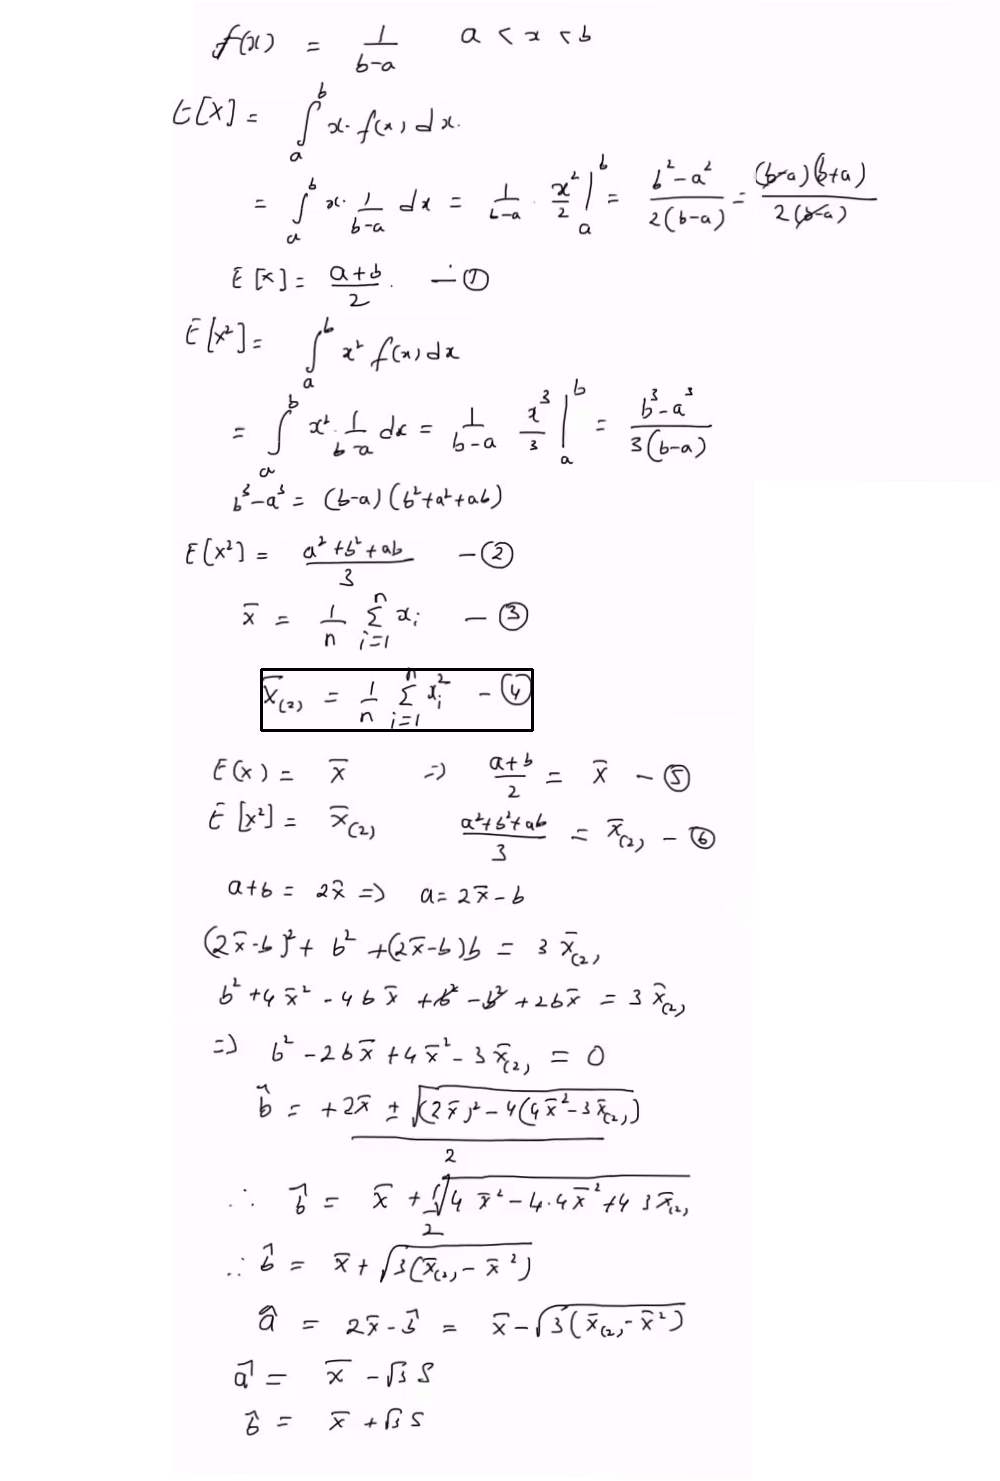 f(x) = 1/(b-a)   a < x < b
E[X] = ∫_a^b x· f(x) dx.
= ∫_a^b x· 1/(b-a) dx = 1/(b-a) · x²/2 |_a^b = (b²-a²)/(2(b-a)) = (b-a)(b+a)/(2(b-a))
E[x] = (a+b)/2. — ①
E[x²] = ∫_a^b x² f(x) dx
= ∫_a^b x² · 1/(b-a) dx = 1/(b-a) x³/3 |_a^b = (b³-a³)/(3(b-a))
b³-a³ = (b-a)(b²+a²+ab)
E[x²] = (a²+b²+ab)/3 — ②
x̄ = 1/n Σ_{i=1}^n x_i — ③
x̄_(2) = 1/n Σ_{i=1}^n x_i² — ④
E(x) = x̄ => (a+b)/2 = x̄ — ⑤
E[x²] = x̄_(2)   (a²+b²+ab)/3 = x̄_(2) — ⑥
a+b = 2x̄ => a = 2x̄-b
(2x̄-b)² + b² + (2x̄-b)b = 3 x̄_(2)
b² + 4x̄² - 4bx̄ + b² - b² + 2bx̄ = 3 x̄_(2)
=> b² - 2bx̄ + 4x̄² - 3x̄_(2) = 0
b̂ = (+2x̄ ± √((2x̄)² - 4(4x̄² - 3x̄_(2))))/2
∴ b̂ = x̄ + √(4x̄² - 4·4x̄² + 4 3x̄_(2))/2
∴ b̂ = x̄ + √(3(x̄_(2) - x̄²))
â = 2x̄ - b̂ = x̄ - √(3(x̄_(2) - x̄²))
â = x̄ - √3 S
b̂ = x̄ + √3 S